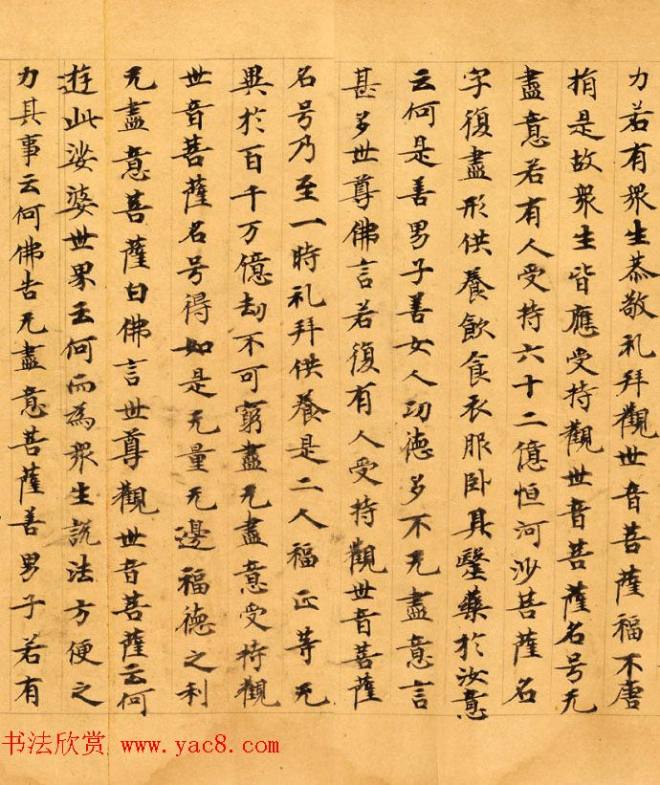 力若有衆生恭敬礼拜觀世音菩薩福不唐
捐是故衆生皆應受持觀世音菩薩名号无
盡意若有人受持六十二億恒河沙菩薩名
字復盡形供養飲食衣服卧具醫藥於汝意
云何是善男子善女人功德多不无盡意言
甚多世尊佛言若復有人受持觀世音菩薩
名号乃至一時礼拜供養是二人福正等无
異於百千万億劫不可窮盡无盡意受持觀
世音菩薩名号得如是无量无邊福德之利
无盡意菩薩白佛言世尊觀世音菩薩云何
遊此娑婆世界云何而為衆生說法方便之
力其事云何佛告无盡意菩薩善男子若有
书法欣赏 www.yac8.com